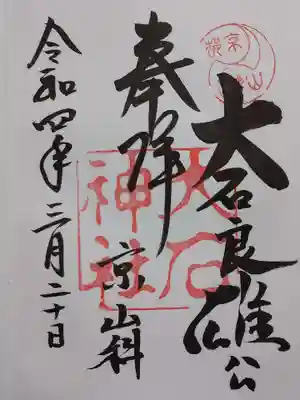 大石良雄公
奉拝
京山科
大石
神社
令和四年三月二十日